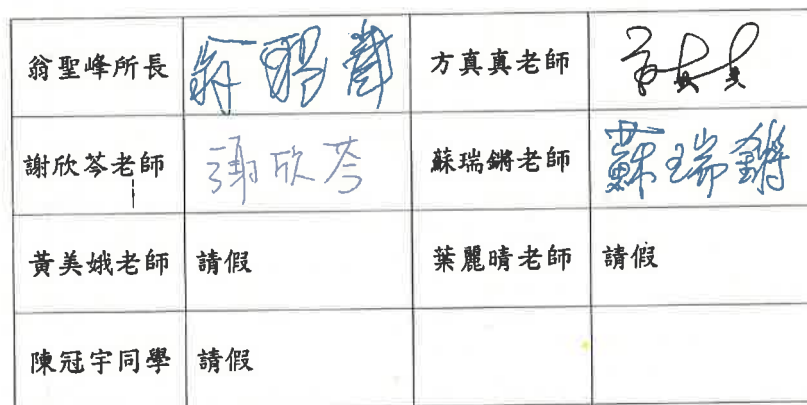 翁聖峰所長 翁聖峯 方真真老師 方真真
謝欣芩老師 謝欣芩 蘇瑞鏘老師 蘇瑞鏘
黃美娥老師 請假 葉麗晴老師 請假
陳冠宇同學 請假